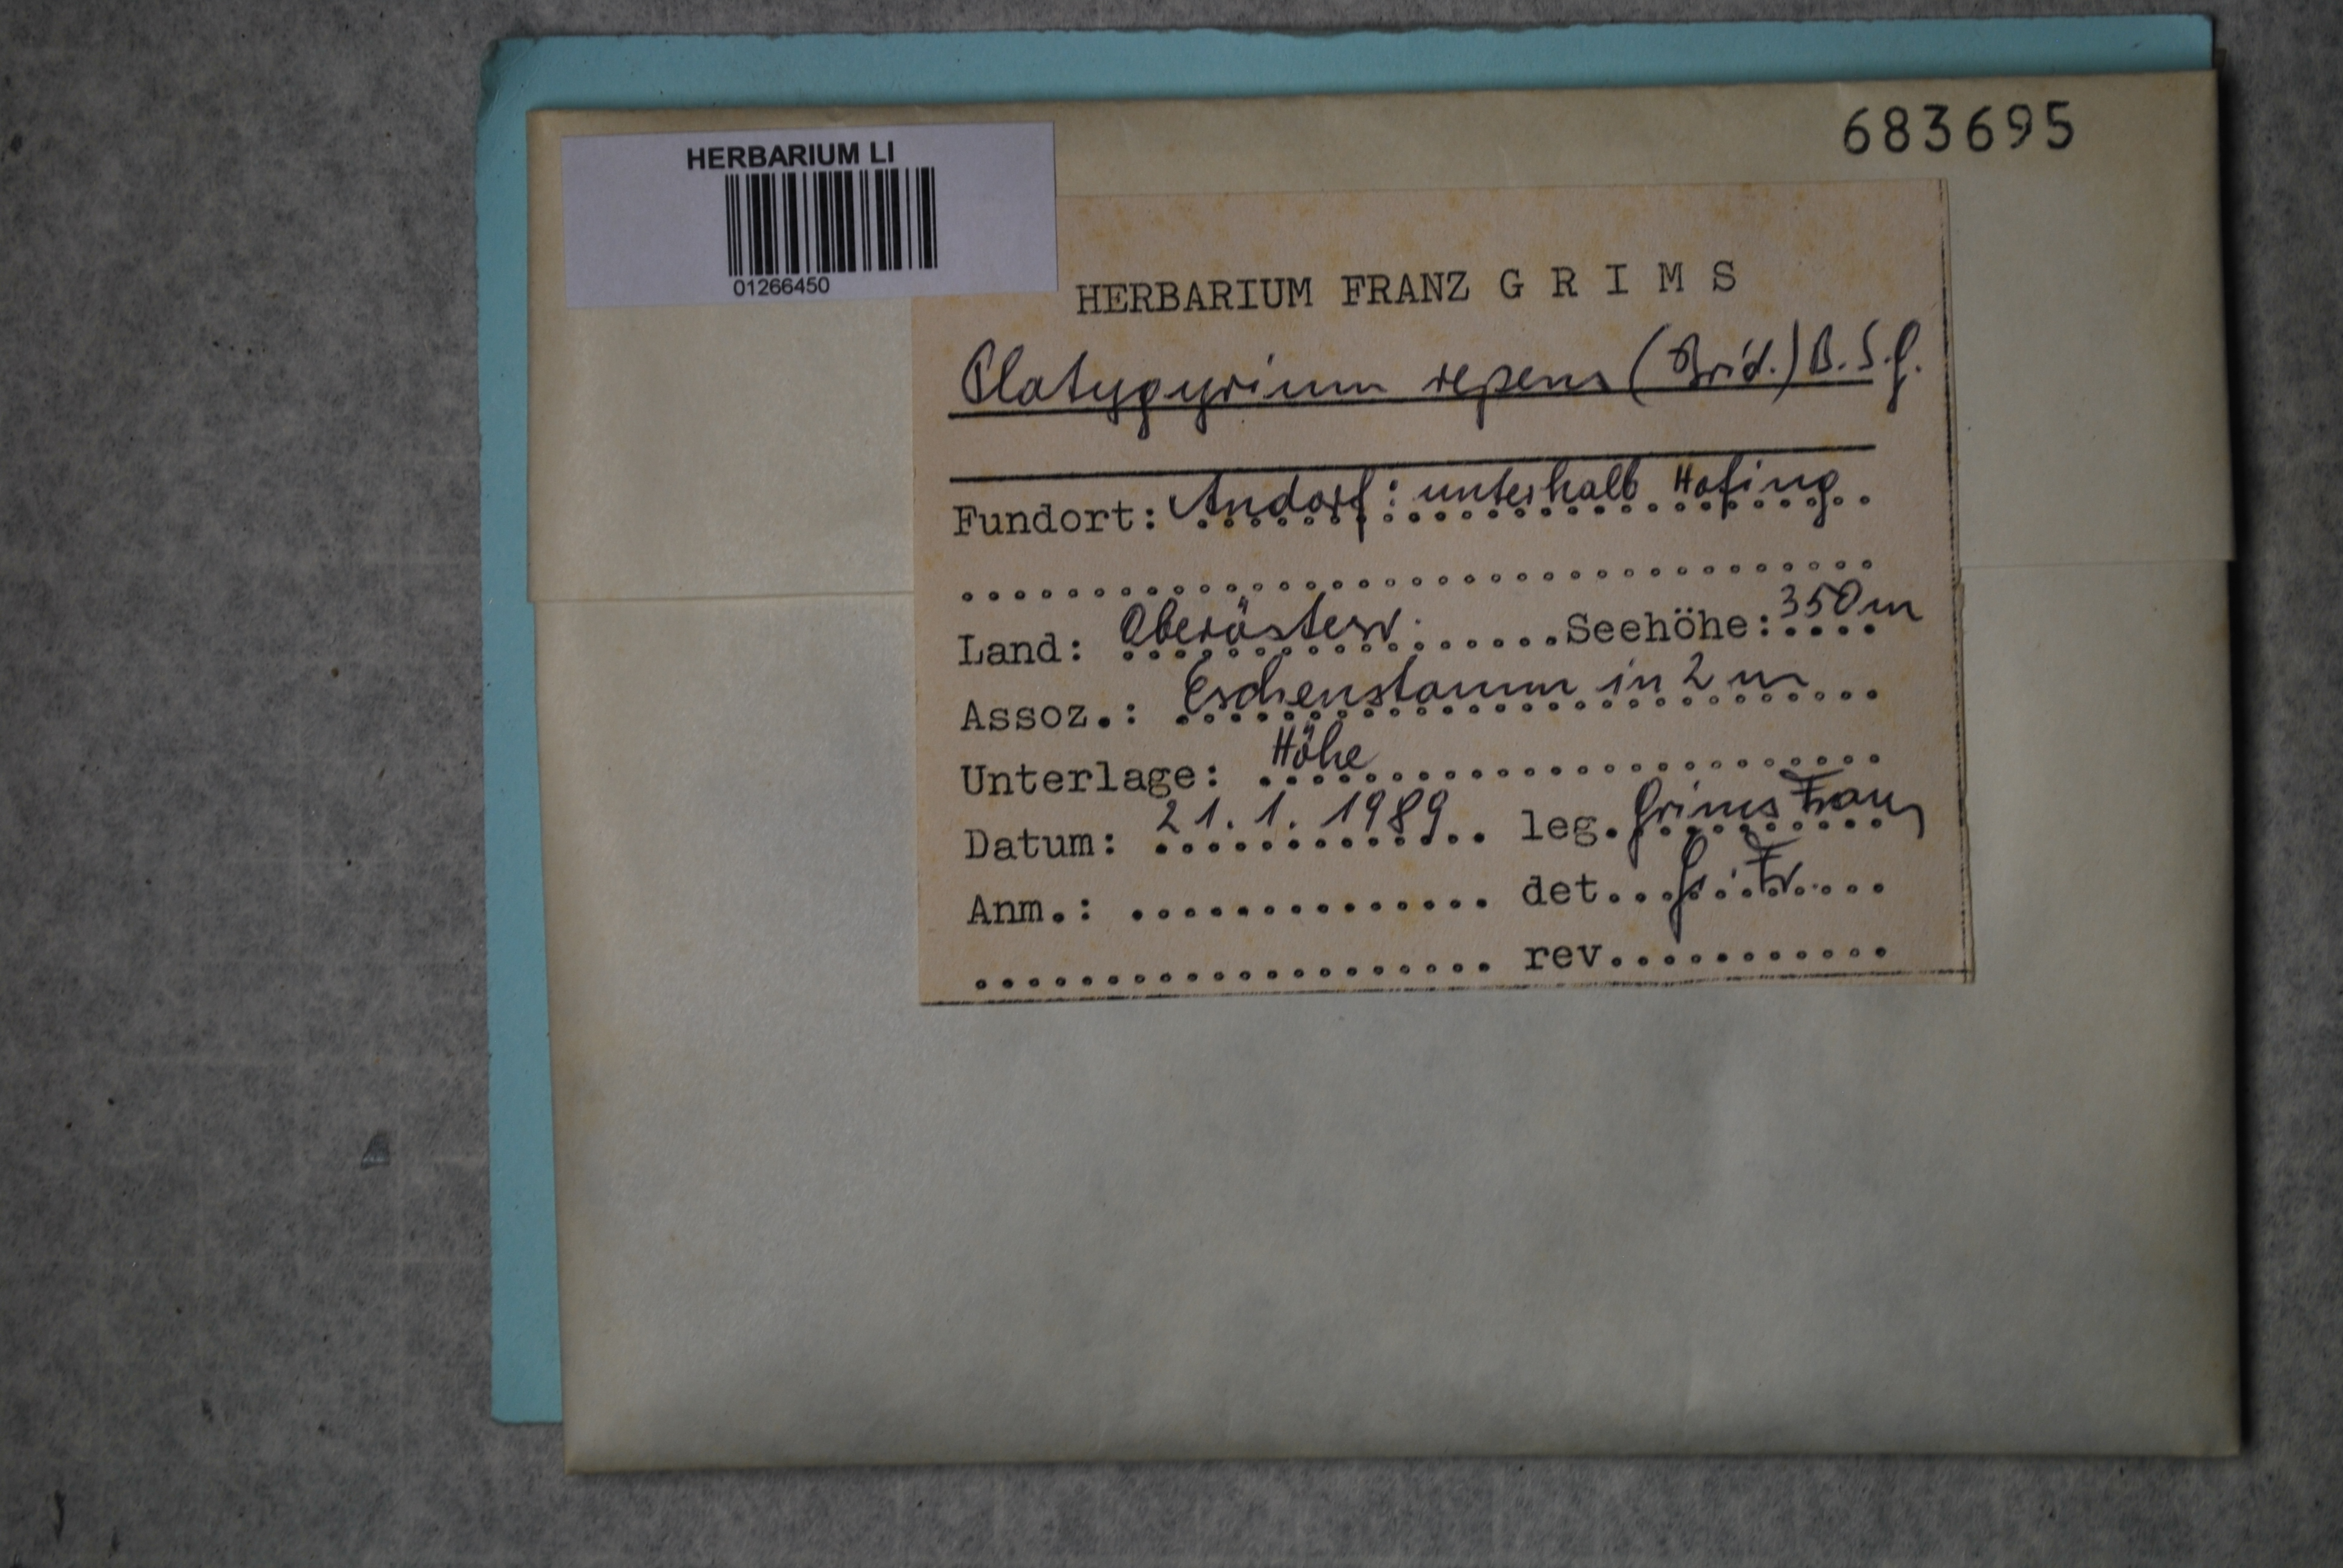 683695
HERBARIUM LI
01266450
HERBARIUM FRANZ G R I M S
Platygyrium repens (Brid.) B.S.G.
Fundort: Andorf: unterhalb Hofing
Land: Oberösterr. Seehöhe: 350m
Assoz.: Eschenstamm in 2 m
Unterlage: Höhe
Datum: 21.1.1989 leg. Grims Franz
Anm.: det. G. Fr.
rev.